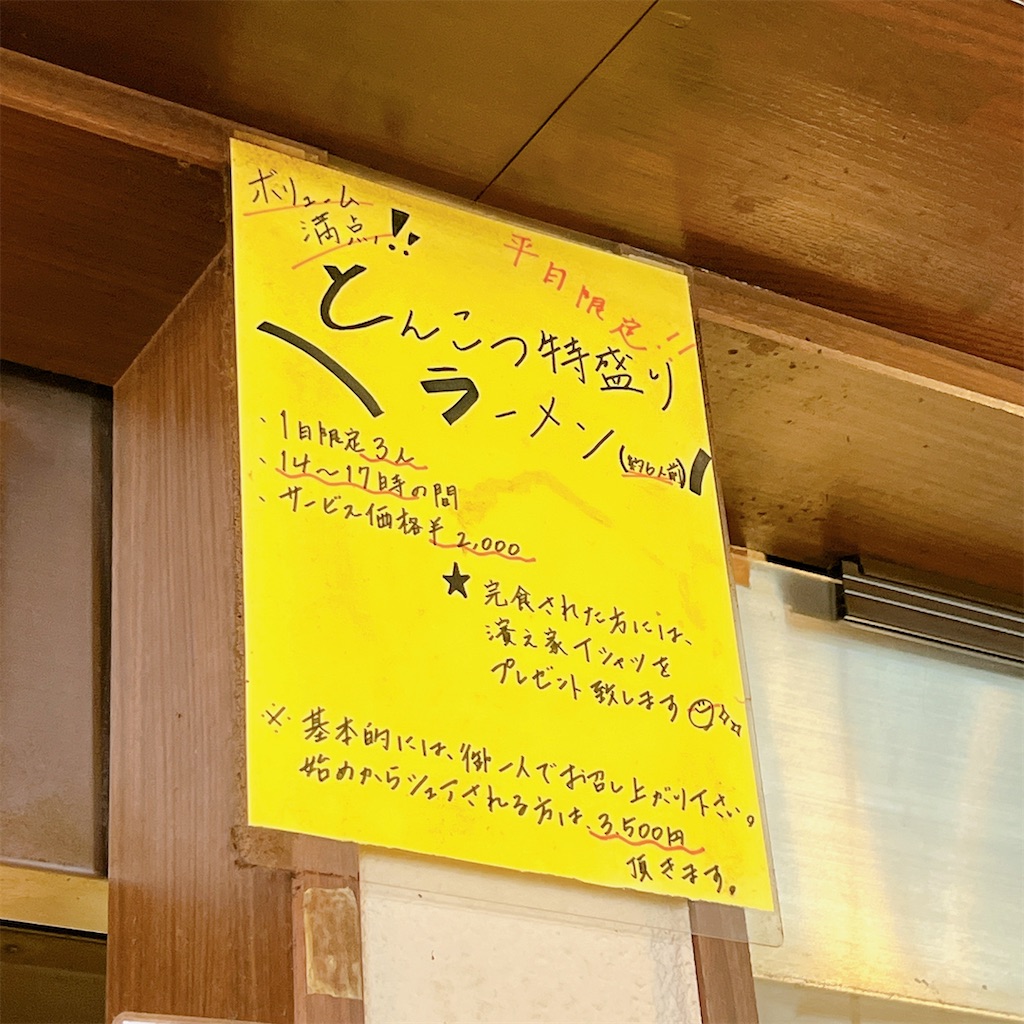 ボリューム
満点!!
平日限定!!
とんこつ特盛り
ラーメン(約6人前)
・1日限定3人
・14〜17時の間
・サービス価格¥2,000
★完食された方には、
濱え家Tシャツを
プレゼント致します
※基本的には、御一人でお召し上がり下さい。
始めからシェアされる方は、3,500円
頂きます。